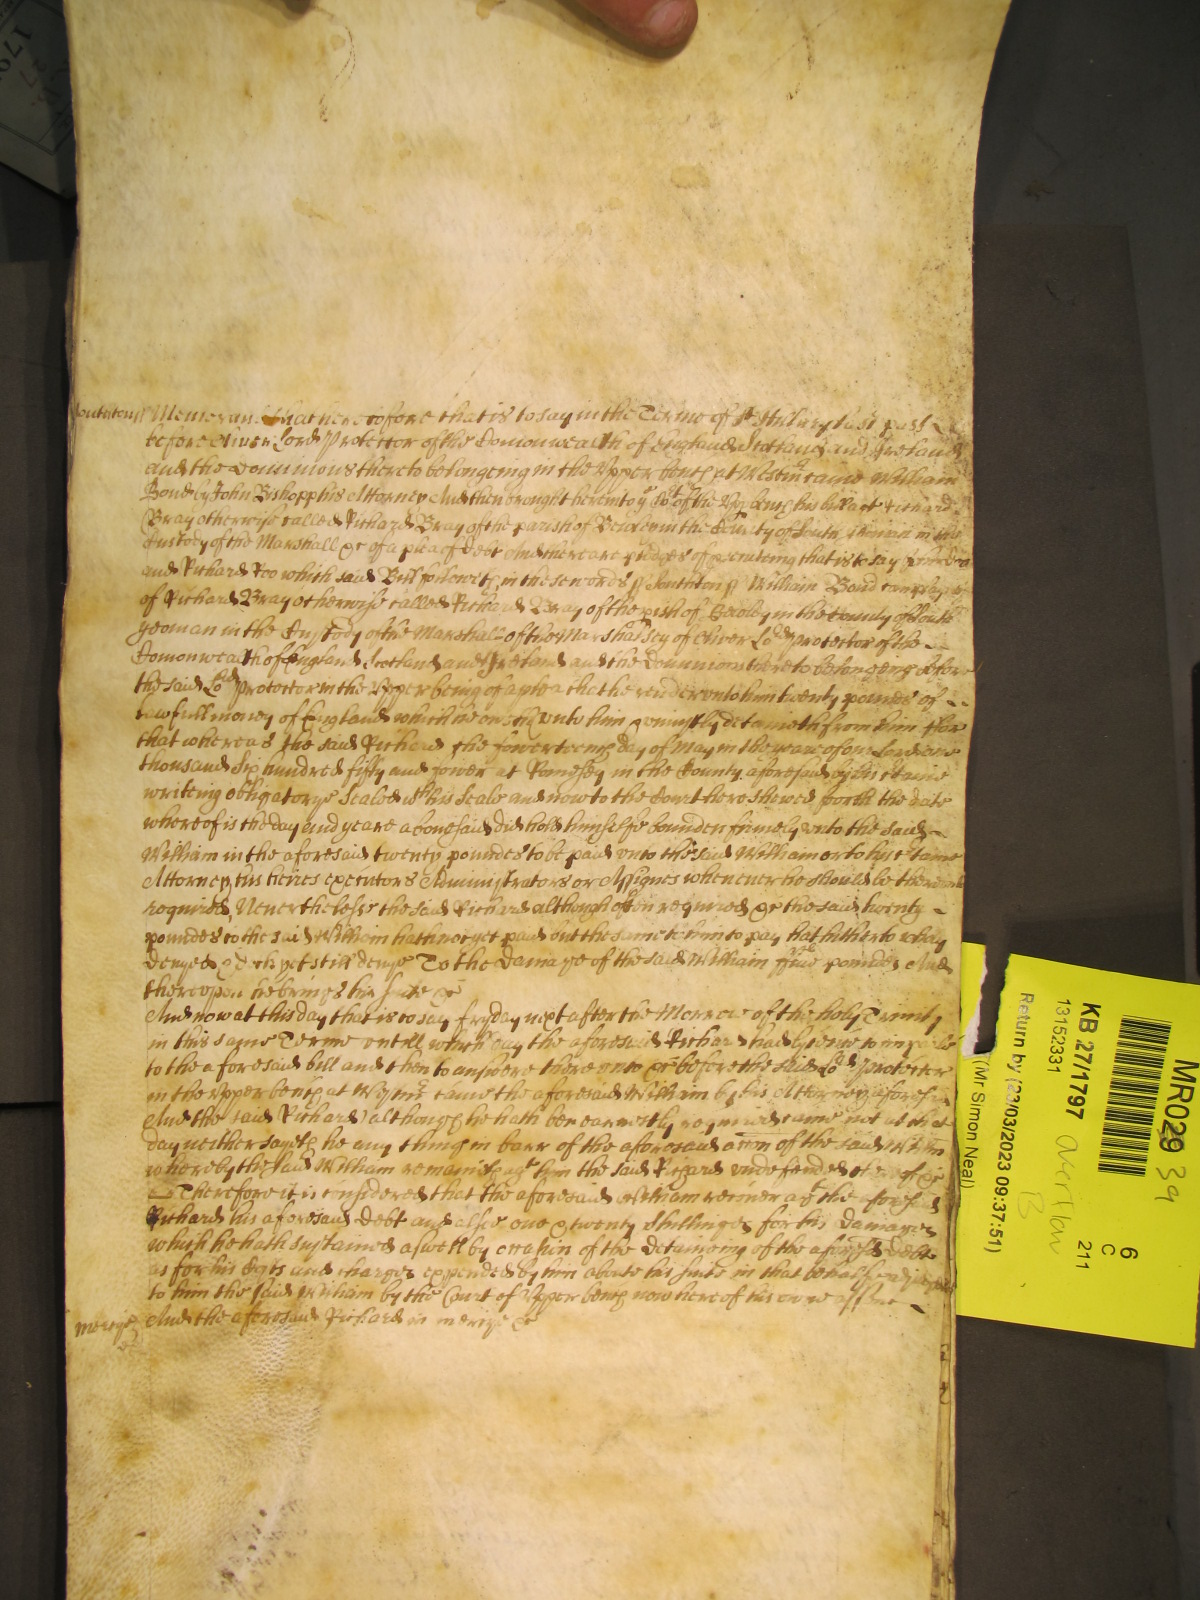 Southton ss Memorand that heretofore that is to say in the Terme of St Hillary last past
before Oliver Lord Protector of the Comonwealth of England Scotland and Ireland
and the Dominions thereto belongeing in the Upper bench at Westmr came William
Bond by John Bishopp his Attorney And then brought here into ye Cort of the Upp bench his bill agt Richard
Bray otherwise called Richard Bray of the parish of in the County of South yeoman in the
Custody of the Marshall &c of a plea of Debt And there are pledges of prosecuting that is to say John Doo
and Richard Roo which said Bill followeth in these words ss Southton ss William Bond complaynes
of Richard Bray otherwise called Richard Bray of the pish of in the County of South
yeoman in the Custody of the Marshall of the Marshalsey of Oliver Lord Protector of the
Comonwealth of England Scotland and Ireland and the Dominions thereto belongeing before
the said Lo Protector in the Upper being of a plea that he render unto him twenty pounds of
lawfull money of England which he oweth unto him & uniustly detaineth from him For
that whereas the said Richard the fowerteenth day of May in the yeare of our Lord one
thousand six hundred fifty and fower at Romesey in the County aforesaid by his certaine
writeing obligatorye Sealed with his Seale and now to the Court here shewed forth the date
whereof is the day and yeare abovesaid did hold himselfe bounden firmely unto the said
William in the aforesaid twenty poundes to be paid unto the said William or to his certaine
Attorney his heires executors Administrators or Assignes whenever he should be thereunto
required, Neverthelesse the said Richard although often required &c the said twenty
poundes to the said William hath not yet paid but the same to him to pay hath hitherto whole
denyed & doth yet still denye To the Damage of the said William five poundes And
thereupon he brings his suite &c
And now at this day that is to say fryday next after the Morrow of the holy Trinity
in this same Terme untill which day the aforesaid Richard had lycence to imparle
to the aforesaid bill and then to answere thereunto &c before the said Lo Protector
in the Upper bench at Westmr came the aforesaid William by his Attorney aforesaid
And the said Richard although he hath ben earnestly required came not at that
day neither sayeth he any thing in barr of the aforesaid accon of the said Willm
whereby the said William remaines agt him the said Richard undefended
Therefore it is considered that the aforesaid William recover agt the aforesaid
Richard his aforesaid debt and alsoe one & twenty Shillinges for his Damages
which he hath sustained aswell by occasion of the detaineing of the aforesd debt
as for his Costs and charges expended by him about his suite in that behalfe adjudged
to him the said William by the Court of Upper bench now here of his owne assent
mercye And the aforesaid Richard in mercye &c
MR029 39
6
C
211
KB 27/1797 overflow
13152331 B
Return by (23/03/2023 09:37:51)
(Mr Simon Neal)